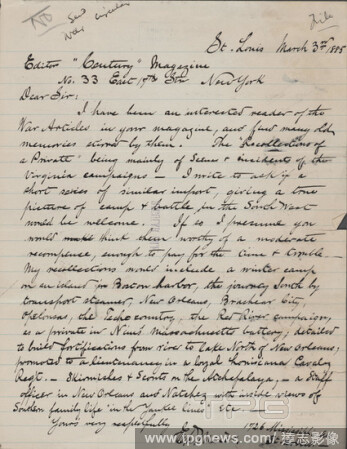 No
see
War
File
St. Louis March 3rd 1885
Editor "Century" Magazine
No. 33 East 17th Str New York
Dear Sir:
I have been an interested reader of the
War Articles in your magazine, and find many old
memories stirred by them. The Recollections of
a Private being mainly of Scenes & incidents of the
Virginia campaigns — I write to ask if a
short series of similar import, giving a true
picture of camp & battle in the South West
would be welcome. If so I presume you
would think them worthy of a moderate
recompense, enough to pay for the time & trouble —
My recollections would include a winter camp
on an island in Boston harbor, the journey South by
transport steamer, New Orleans, Brashear City,
Opelousas, the Teche country, the Red River campaign,
as a private in Nims Massachusetts battery, detailed
to build fortifications from river to Lake North of New Orleans,
promoted to a lieutenancy in a loyal Louisiana Cavalry
Regt. — Skirmishes & Scouts on the Atchafalaya, — a Staff
officer in New Orleans and Natchez with inside views of
Southern family life "in the Yankee lines" etc
Yours very respectfully
1726
St. Louis
TPG
www.ipgnews.com